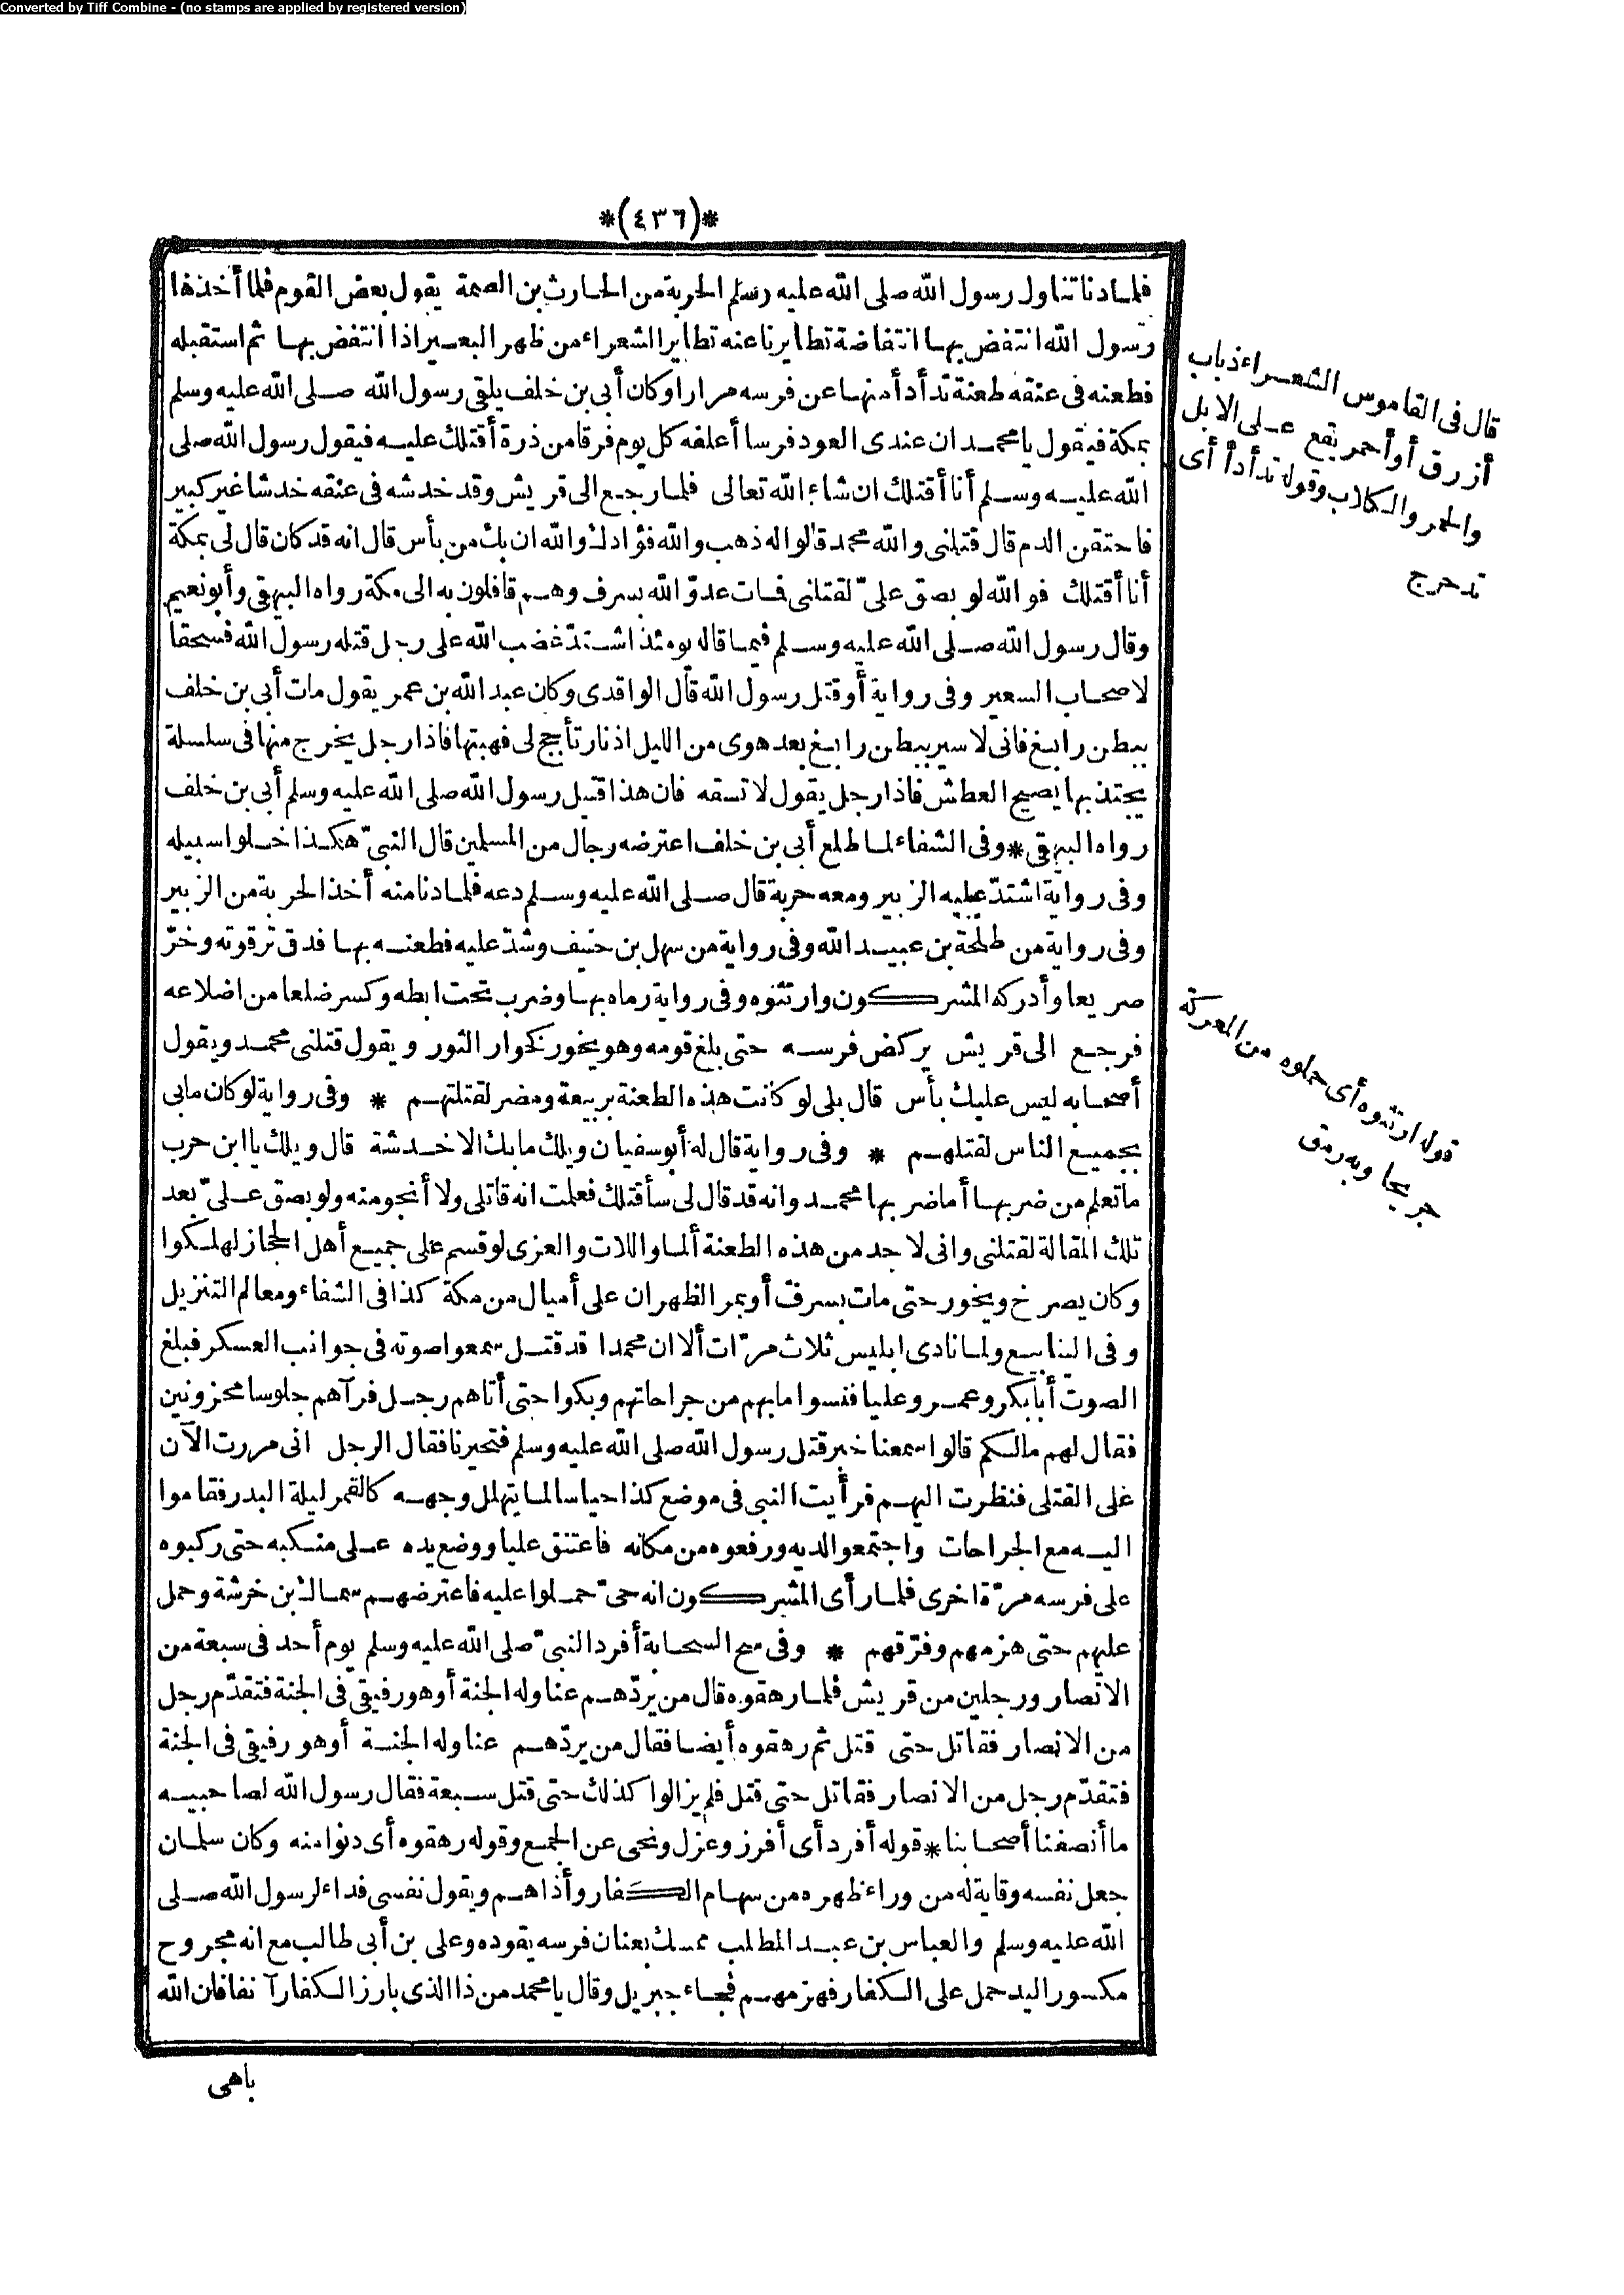 Converted by Tiff Combine - (no stamps are applied by registered version)
*(٤٣٦)*
فلما دنا تناول رسول الله صلى الله عليه وسلم الحربة من الحارث بن الصمة يقول بعض القوم فلما أخذها
رسول الله انتفض بها انتفاضة تطايرنا عنه تطاير الشعراء من ظهر البعير اذا انتفض بها ثم استقبله
فطعنه فى عنقه طعنة تدأدأ منها عن فرسه مرارا وكان أبى بن خلف يلقى رسول الله صلى الله عليه وسلم
بمكة فيقول يا محمد ان عندى العود فرسا أعلفه كل يوم فرقا من ذرة أقتلك عليه فيقول رسول الله صلى
الله عليه وسلم أنا أقتلك ان شاء الله تعالى فلما رجع الى قريش وقد خدشه فى عنقه خدشا غير كبير
فاحتقن الدم قال قتلنى والله محمد قالوا له ذهب والله فؤادك والله ان بك من بأس قال انه قد كان قال لى بمكة
أنا أقتلك فو الله لو بصق علىّ لقتلنى فمات عدوّ الله بسرف وهم قافلون به الى مكة رواه البيهقى وأبو نعيم
وقال رسول الله صلى الله عليه وسلم فيما قاله يومئذ اشتدّ غضب الله على رجل قتله رسول الله فسحقا
لاصحاب السعير وفى رواية أو قتل رسول الله قال الواقدى وكان عبد الله بن عمر يقول مات أبى بن خلف
ببطن رابغ فانى لاسير ببطن رابغ بعد هوى من الليل اذ نار تأجج لى فهبتها فاذا رجل يخرج منها فى سلسلة
يجتذبها يصيح العطش فاذا رجل يقول لا تسقه فان هذا قتيل رسول الله صلى الله عليه وسلم أبى بن خلف
رواه البيهقى * وفى الشفاء لما طلع أبى بن خلف اعترضه رجال من المسلمين قال النبىّ هكذا خلوا سبيله
وفى رواية اشتدّ عليه الزبير ومعه حربة قال صلى الله عليه وسلم دعه فلما دنا منه أخذ الحربة من الزبير
وفى رواية من طلحة بن عبيد الله وفى رواية من سهل بن حنيف وشدّ عليه فطعنه بها فدق ترقوته وخرّ
صريعا وأدركه المشركون وارتثوه وفى رواية رماه بها وضرب تحت ابطه وكسر ضلعا من اضلاعه
فرجع الى قريش يركض فرسه حتى بلغ قومه وهو يخور كخوار الثور ويقول قتلنى محمد ويقول
أصحابه ليس عليك بأس قال بلى لو كانت هذه الطعنة بربيعة ومضر لقتلتهم * وفى رواية لو كان مابى
بجميع الناس لقتلهم * وفى رواية قال له أبو سفيان ويلك مابك الا خدشة قال ويلك يا ابن حرب
ما تعلم من ضربها أما ضربها محمد وانه قد قال لى سأقتلك فعلمت انه قاتلى ولا أنجو منه ولو بصق علىّ بعد
تلك المقالة لقتلنى وانى لاجد من هذه الطعنة ألما واللات والعزى لو قسم على جميع أهل الحجاز لهلكوا
وكان يصرخ ويخور حتى مات بسرف أو بمر الظهران على أميال من مكة كذا فى الشفاء ومعالم التنزيل
وفى الينابيع ولما نادى ابليس ثلاث مرّات ألا ان محمدا قد قتل سمعوا صوته فى جوانب العسكر فبلغ
الصوت أبا بكر وعمر وعليا فنسوا مابهم من جراحاتهم وبكوا حتى أتاهم رجل فرآهم جلوسا محزونين
فقال لهم مالكم قالوا سمعنا خبر قتل رسول الله صلى الله عليه وسلم فتحيرنا فقال الرجل انى مررت الآن
على القتلى فنظرت اليهم فرأيت النبى فى موضع كذا حيا سالما يتهلل وجهه كالقمر ليلة البدر فقاموا
اليه مع الجراحات واجتمعوا لديه ورفعوه من مكانه فاعتنق عليا ووضع يده على منكبه حتى ركبوه
على فرسه مرّة اخرى فلما رأى المشركون انه حىّ حملوا عليه فاعترضهم سماك بن خرشة وحمل
عليهم حتى هزمهم وفرّقهم * وفى سح السحابة أفرد النبىّ صلى الله عليه وسلم يوم أحد فى سبعة من
الانصار ورجلين من قريش فلما رهقوه قال من يردّهم عنا وله الجنة أو هو رفيقى فى الجنة فتقدّم رجل
من الانصار فقاتل حتى قتل ثم رهقوه أيضا فقال من يردّهم عنا وله الجنة أو هو رفيقى فى الجنة
فتقدّم رجل من الانصار فقاتل حتى قتل فلم يزالوا كذلك حتى قتل سبعة فقال رسول الله لصاحبيه
ما أنصفنا أصحابنا * قوله أفرد أى أفرز وعزل ونحى عن الجمع وقوله رهقوه أى دنوا منه وكان سلمان
جعل نفسه وقاية له من وراء ظهره من سهام الكفار وأذاهم ويقول نفسى فداء لرسول الله صلى
الله عليه وسلم والعباس بن عبد المطلب ممسك بعنان فرسه يقوده وعلى بن أبى طالب مع انه مجروح
مكسور اليد حمل على الكفار فهزمهم فجاء جبريل وقال يا محمد من ذا الذى بارز الكفار آنفا فان الله
باهى
قال فى القاموس الشعراء ذباب
أزرق أو أحمر يقع على الابل
والحمر والكلاب وقوله تدأدأ أى
تدحرج
قوله ارتثوه أى حملوه من المعركة
جريحا وبه رمق